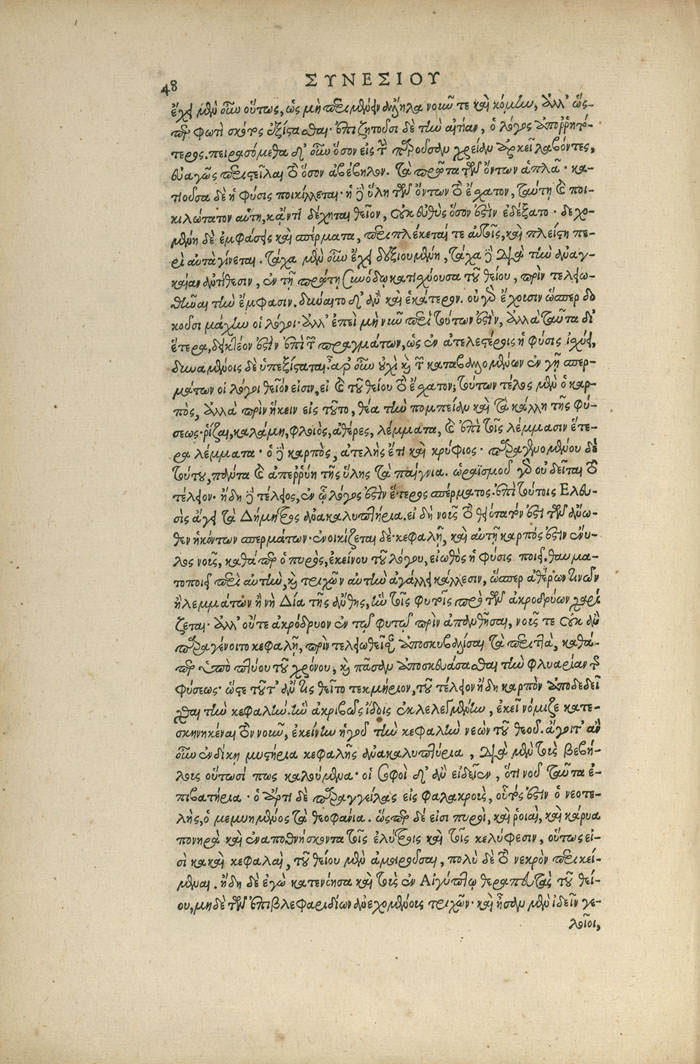 48
ΣΥΝΕΣΙΟΥ
ἔχει μὲν οὖν οὕτως, ὡς μὴ εἶναι διάδηλα νοῦν τε καὶ κόμην, ἀλλ' ὥς-
περ φωτὶ σκότος ἐξίστασθαι. ἐπιζητοῦσι δὲ τὴν αἰτίαν, ὁ λόγος ἀπορρητό-
τερος. πειρασόμεθα δ' οὖν ὅσον εἰς τὴν παροῦσαν χρείαν ἀρκεῖ λαβόντες,
εὐαγῶς περιστεῖλαι τὸ ὅσον ἀβέβηλον. τὰ πρῶτα τῶν ὄντων ἁπλᾶ· κα-
τιοῦσα δὲ ἡ φύσις ποικίλλεται· ἡ δὲ ὕλη τῶν ὄντων τὸ ἔσχατον, ταύτῃ καὶ ποι-
κιλώτατον αὕτη, κἄν τι δέχηται θεῖον, οὐκ εὐθὺς ὅσον ἐστὶν ἐδέξατο· δεχο-
μένη δὲ ἐμφάσεις καὶ σπέρματα, περιπλέκεταί τε αὐτοῖς, καὶ πλείστη πε-
ρὶ αὐτὰ γίνεται. τάχα μὲν οὖν ἔχει δεξιουμένη, τάχα δὲ διὰ τὴν ἀναγ-
καίαν ἀντίθεσιν, ἐν τῇ πρώτῃ συνόδῳ κατισχύουσα τοῦ θείου, πρὶν τελεω-
θῆναι τὴν ἔμφασιν. δύναιτο δ' ἂν καὶ ἑκάτερον. οὐ γὰρ ἔχουσιν ὥσπερ δο
κοῦσι μάχην οἱ λόγοι· ἀλλ' ἐπεὶ μὴ νῦν περὶ τούτων ἐστὶν, ἀλλὰ ταῦτα δι'
ἕτερα, δεικτέον ἐστὶν ἐπὶ τῶν πραγμάτων, ὡς ἐν ἀτελεστέροις ἡ φύσις ἰσχύει,
δυναμένοις δὲ ὑπεξίσταται. ἆρ' οὖν οὐχὶ καὶ τῶν καταβαλλομένων ἐν γῇ σπερ-
μάτων οἱ λόγοι θεῖόν εἰσιν, εἰ καὶ τοῦ θείου τὸ ἔσχατον; τούτων τέλος μὲν ὁ καρ-
πὸς, ἀλλὰ πρὶν ἥκειν εἰς τοῦτο, θέα τὴν πομπείαν καὶ τὰ κάλλη τῆς φύ-
σεως· ῥίζαι, καλάμη, φλοιὸς, ἀθέρες, λέμματα, καὶ ἐπὶ τοῖς λέμμασιν ἕτε-
ρα λέμματα· ὁ δὲ καρπὸς, ἀτελὴς ἔτι καὶ κρύφιος· παραγενομένου δὲ
τούτου, πάντα καὶ ἀπερρύη τῆς ὕλης τὰ παίγνια. ὡραϊσμοῦ γὰρ οὐ δεῖται τὸ
τέλειον. ἤδη δὲ τέλειος, ἐν ᾧ λόγος ἐστὶν ἕτερος σπέρματος. ἐπὶ τούτοις Ἐλευ-
σὶς ἄγει τὰ Δήμητρος ἀνακαλυπτήρια. εἰ δὴ νοῦς τὸ θειότατόν ἐστι τῶν ἄνω-
θεν ἡκόντων σπερμάτων· ἐνοικίζεται δὲ κεφαλῇ, καὶ αὐτὴ καρπὸς ἐστὶν ἔνυ-
λος νοῦς, καθάπερ ὁ πυρὸς, ἐκείνου τοῦ λόγου, εἰωθὸς ἡ φύσις ποιεῖ. θαυμα-
τοποιεῖ περὶ αὐτὴν, καὶ τριχῶν αὐτὴν ἀγάλλει κάλλεσιν, ὥσπερ ἀθέρων τινῶν
ἢ λεμμάτων ἢ νὴ Δία τῆς ἄνθης, ἣν τοῖς φυτοῖς πρὸ τῶν ἀκροδρύων χαρί
ζεται· ἀλλ' οὔτε ἀκρόδρυον ἐν τῷ φυτῷ πρὶν ἀπανθῆσαι, νοῦς τε οὐκ ἂν
παραγένοιτο κεφαλῇ, πρὶν τελεωθεῖσαν ἀποσκυβαλίσαι τὰ περιττὰ, καθά-
περ ὑπὸ πτύου τοῦ χρόνου, καὶ πᾶσαν ἀποσκευάσασθαι τὴν φλυαρίαν τῆς
φύσεως· ὥστε τοῦτ' ἄν τις θεῖτο τεκμήριον, τοῦ τέλειον ἤδη καρπὸν ἀποδεδεῖ
χθαι τὴν κεφαλήν. ἣν ἀκριβῶς ἴδοις ἐκλελειμμένην, ἐκεῖ νόμιζε κατε-
σκηνηκέναι τὸν νοῦν, ἐκείνην ἡγοῦ τὴν κεφαλὴν νεὼν τοῦ θεοῦ. ἄγοιτ' ἂν
οὖν ἐν δίκῃ μυστήρια κεφαλῆς ἀνακαλυπτήρια, διὰ μὲν τοὺς βεβή-
λους οὑτωσί πως καλούμενα· οἱ σοφοὶ δ' ἂν εἰδεῖεν, ὅτι νοῦ ταῦτα ἐ-
πιβατήρια· ὁ ἄρτι δὲ παραγγείλας εἰς φαλακροὺς, οὗτός ἐστιν ὁ νεοτε-
λὴς, ὁ μεμυημένος τὰ θεοφάνια. ὥσπερ δέ εἰσι πυροὶ, καὶ ῥοιαὶ, καὶ κάρυα
πονηρὰ καὶ ἐναποθνήσκοντα τοῖς ἐλύτροις καὶ τοῖς κελύφεσιν, οὕτως εἰ-
σὶ κακαὶ κεφαλαὶ, τοῦ θείου μὲν ἀμοιροῦσαι, πολὺ δὲ τὸ νεκρὸν περικεί-
μεναι. ἤδη δὲ ἐγὼ κατενόησα καὶ τοὺς ἐν Αἰγύπτῳ θεραπευτὰς τοῦ θεί-
ου, μηδὲ τῶν ἐπιβλεφαριδίων ἀνεχομένους τριχῶν· καὶ ἦσαν μὲν ἰδεῖν γε-
λοῖοι,